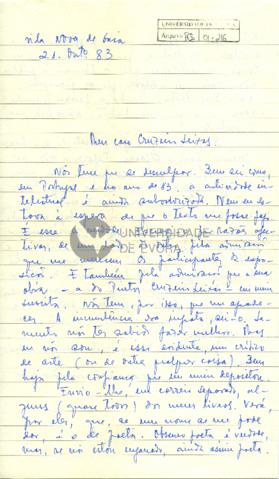 UNIVERSIDADE DE ÉVORA
Vila Nova de Gaia
21. Outº 83
Meu caro Cruzeiro Seixas:
Não tem que se desculpar. Bem sei como,
em Portugal e no ano de 83, a actividade in-
telectual é ainda subordinada. Nem eu es-
tava à espera de que o texto me fosse pago.
E esse
tivas, de pela admiração
que me Os participantes da expo-
sição. E também pela admiração que a sua
obra – a do Pintor Cruzeiro Seixas – em mim
suscita. Não tem, por isso, que me agrade-
cer. A incumbência
mente não ter sabido fazer melhor.
eu não sou, é isso evidente, um crítico
de arte (ou de outra qualquer coisa). Bem
haja pela confiança que em mim depositou.
Envio-lhe, em correio separado, al-
guns (quase todos) dos meus livros. Verá,
por eles, que, se um nome se me pode
dar, é o de poeta. Obscuro poeta, é verdade,
mas, se não estou enganado, ainda assim poeta.